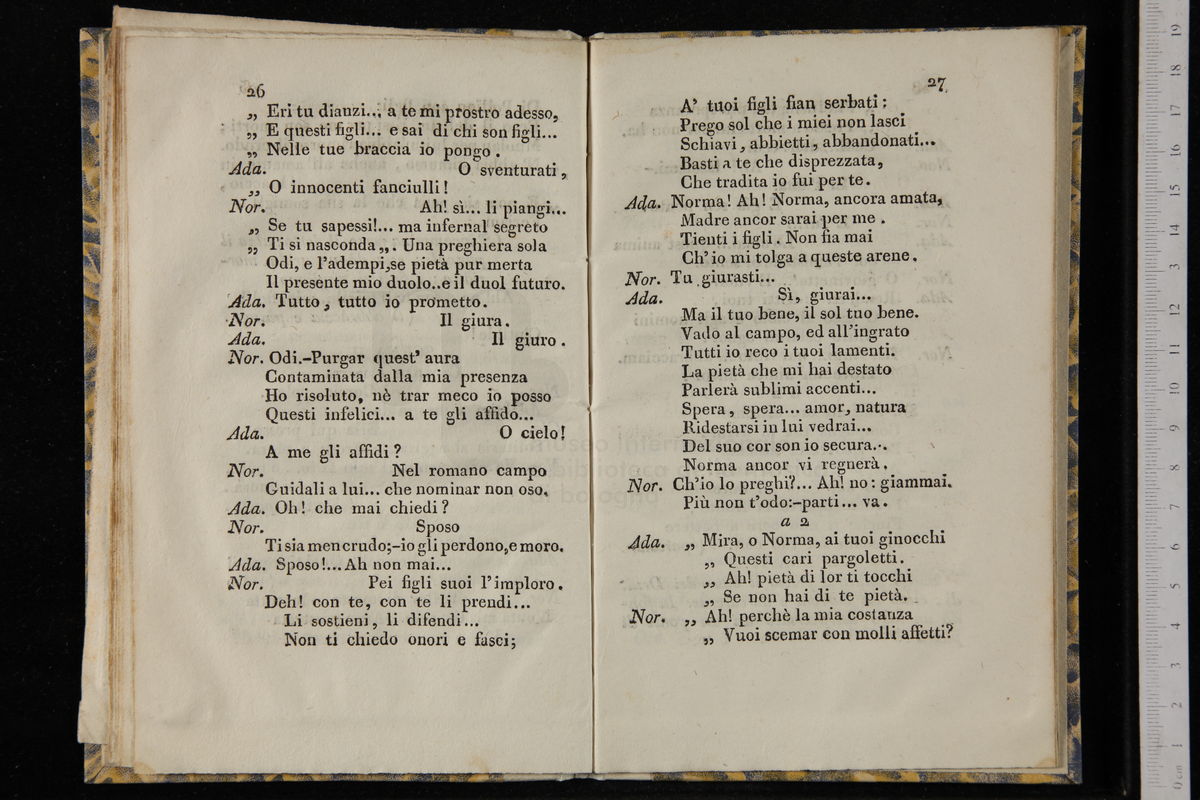 26
„ Eri tu dianzi... a te mi prostro adesso,
„ E questi figli... e sai di chi son figli...
„ Nelle tue braccia io pongo.
Ada. O sventurati,
„ O innocenti fanciulli!
Nor. Ah! sì... li piangi...
„ Se tu sapessi!... ma infernal segreto
„ Ti si nasconda„. Una preghiera sola
Odi, e l'adempi,se pietà pur merta
Il presente mio duolo..e il duol futuro.
Ada. Tutto, tutto io prometto.
Nor. Il giura.
Ada. Il giuro.
Nor. Odi.-Purgar quest' aura
Contaminata dalla mia presenza
Ho risoluto, nè trar meco io posso
Questi infelici... a te gli affido...
Ada. O cielo!
A me gli affidi?
Nor. Nel romano campo
Guidali a lui... che nominar non oso.
Ada. Oh! che mai chiedi?
Nor. Sposo
Ti sia men crudo;-io gli perdono,e moro.
Ada. Sposo!...Ah non mai...
Nor. Pei figli suoi l'imploro.
Deh! con te, con te li prendi...
Li sostieni, li difendi...
Non ti chiedo onori e fasci;
27
A' tuoi figli fian serbati:
Prego sol che i miei non lasci
Schiavi, abbietti, abbandonati...
Basti a te che disprezzata,
Che tradita io fui per te.
Ada. Norma! Ah! Norma, ancora amata,
Madre ancor sarai per me.
Tienti i figli. Non fia mai
Ch' io mi tolga a queste arene.
Nor. Tu giurasti...
Ada. Sì, giurai...
Ma il tuo bene, il sol tuo bene.
Vado al campo, ed all'ingrato
Tutti io reco i tuoi lamenti.
La pietà che mi hai destato
Parlerà sublimi accenti...
Spera, spera... amor, natura
Ridestarsi in lui vedrai...
Del suo cor son io secura...
Norma ancor vi regnerà.
Nor. Ch'io lo preghi?... Ah! no: giammai.
Più non t'odo:-parti... va.
a 2
Ada. „ Mira, o Norma, ai tuoi ginocchi
„ Questi cari pargoletti.
„ Ah! pietà di lor ti tocchi
„ Se non hai di te pietà.
Nor. „ Ah! perchè la mia costanza
„ Vuoi scemar con molli affetti?